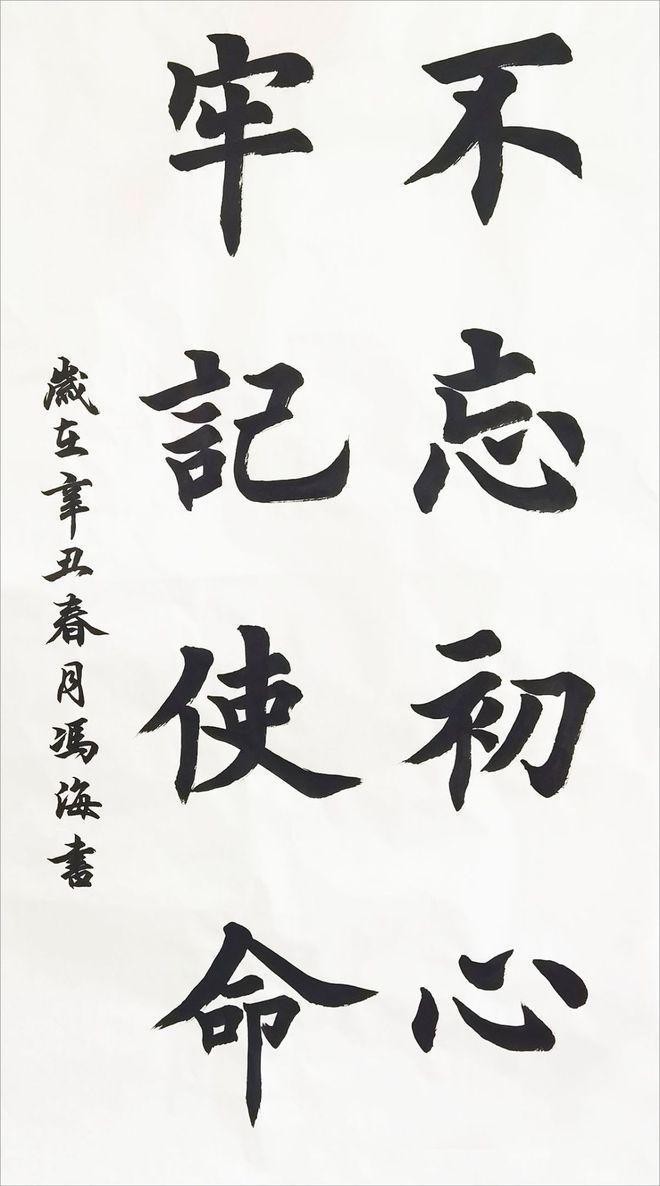 不忘初心
牢記使命
歲在辛丑春月馮海書